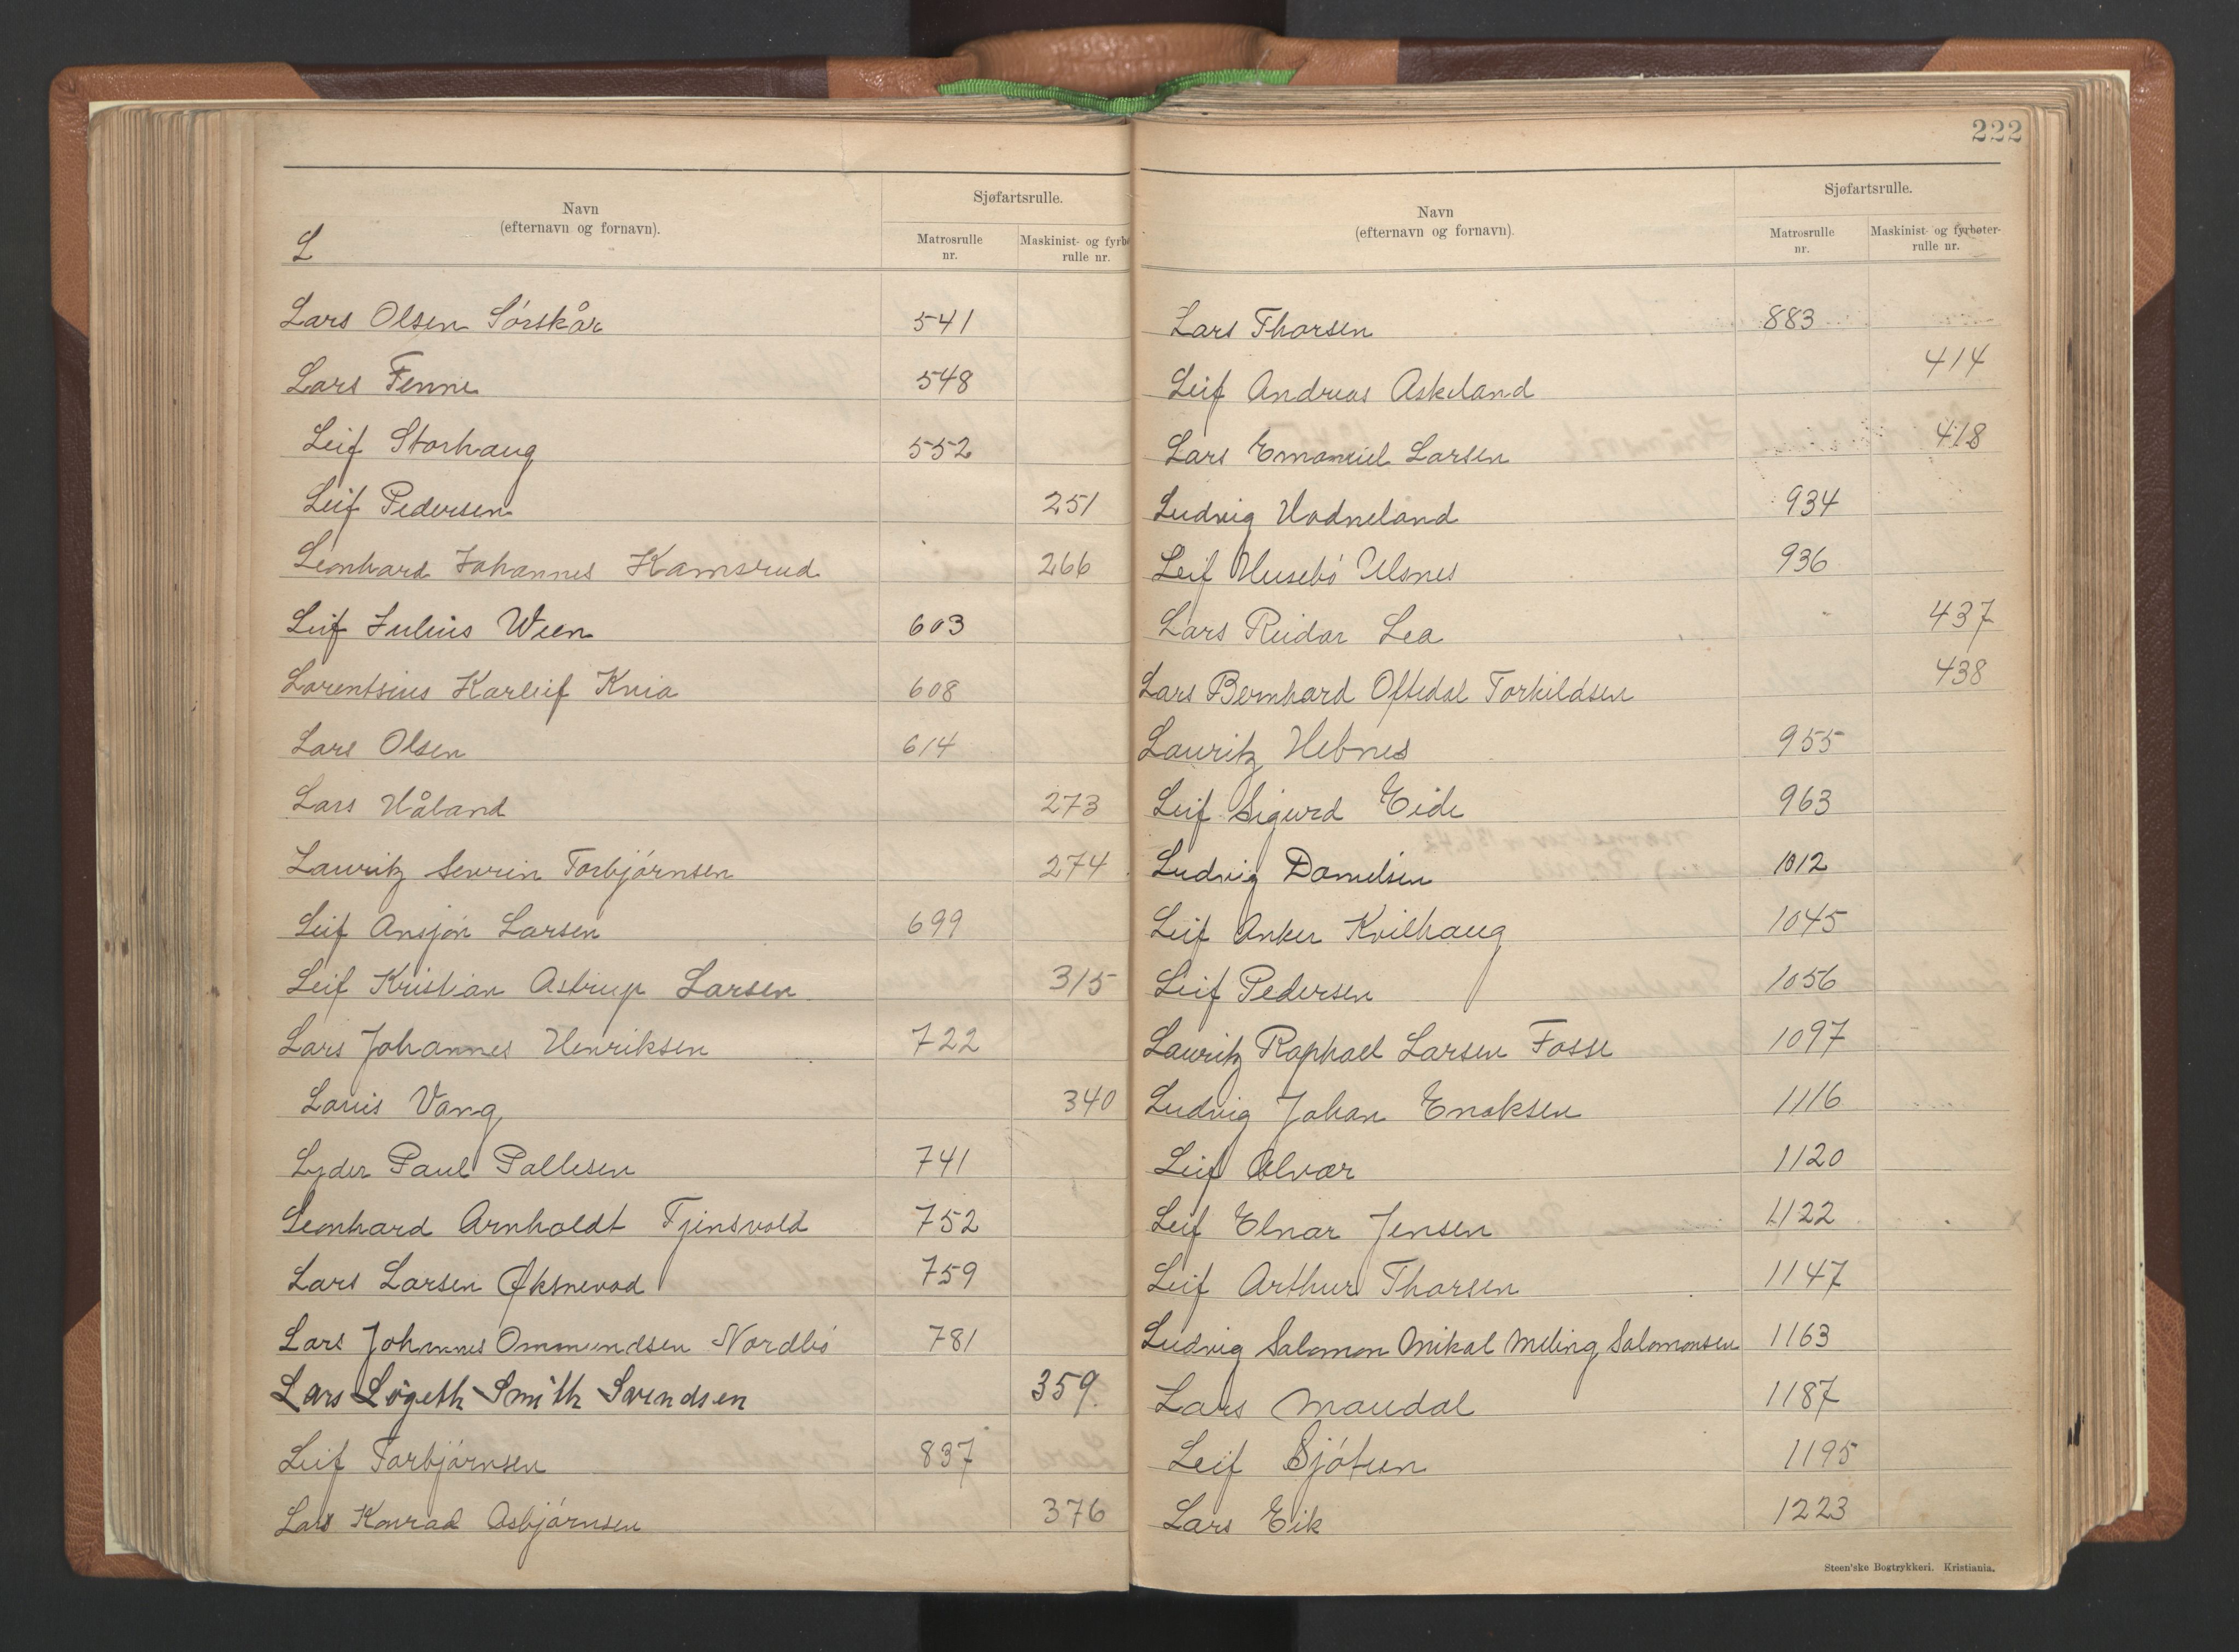 222
L
Navn
(efternavn og fornavn).
Sjøfartsrulle.
Matrosrulle
nr.
Maskinist- og fyrbø
rulle nr.
Lars Olsen Sörskår 541
Lars Fenne 548
Leif Storhaug 552
Leif Pedersen 251
Leonhard Johannes Kamsrud 266
Leif Julius Ween 603
Larentsius Karleif Kvia 608
Lars Olsen 614
Lars Håland 273
Lauritz Sevrin Torbjörnsen 274
Leif Ansjön Larsen 699
Leif Kristian Astrup Larsen 315
Lars Johannes Henriksen 722
Louis Vang 340
Lyder Paul Pallesen 741
Leonhard Arnholdt Tjensvold 752
Lars Larsen Øksnevad 759
Lars Johannes Ommundsen Nordbö 781
Lars Lögeth Smith Svendsen 359
Leif Torbjörnsen 837
Lars Konrad Asbjörnsen 376
Navn
(efternavn og fornavn).
Sjøfartsrulle.
Matrosrulle
nr.
Maskinist- og fyrbøter-
rulle nr.
Lars Thorsen 883
Leif Andreas Askeland 414
Lars Emanuel Larsen 418
Ludvig Hodneland 934
Leif Husebö Ulsnes 936
Lars Reidar Lea 437
Lars Bernhard Oftedal Torkildsen 438
Lauritz Hebnes 955
Leif Sigurd Eide 963
Ludvig Danielsen 1012
Leif Anker Kvilhaug 1045
Leif Pedersen 1056
Lauritz Raphael Larsen Fosse 1097
Ludvig Johan Enoksen 1116
Leif Alvær 1120
Leif Elnar Jensen 1122
Leif Arthur Thorsen 1147
Ludvig Salomon Mikal Meling Salomonsen 1163
Lars Maudal 1187
Leif Sjötun 1195
Lars Eik 1223
Steen'ske Bogtrykkeri. Kristiania.